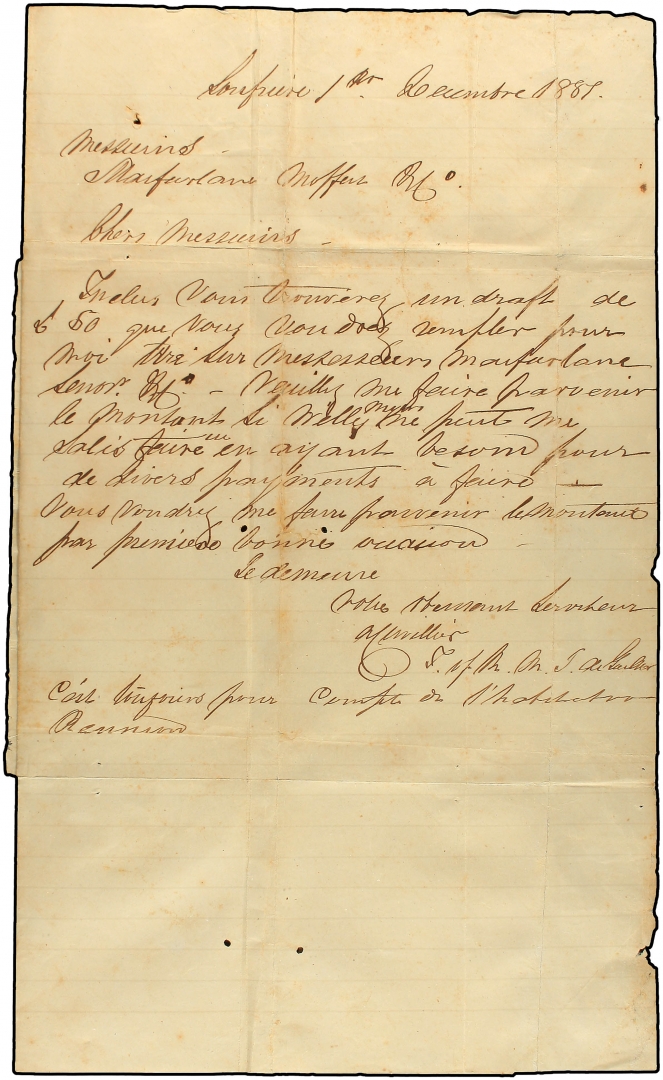 Soufriere 1er Decembre 1881.
Messieurs
Macfarlane Moffat & Co.
Chers Messieurs
Inclus Vous trouverez un draft de
£ 50 que Vous Voudrez remplir pour
moi tiré sur Messrs Macfarlane
senor & Co. - Veuillez me faire parvenir
le montant si Welly Mers me peut me
satisfaire en ayant besoin pour
de divers payments à faire -
Vous Voudrez me faire parvenir le montant
par première bonne occasion -
Je demeure
Votre Serviteur
T. of R. M. J. de
C'est toujours pour Compte de l'Habitation
Reunion